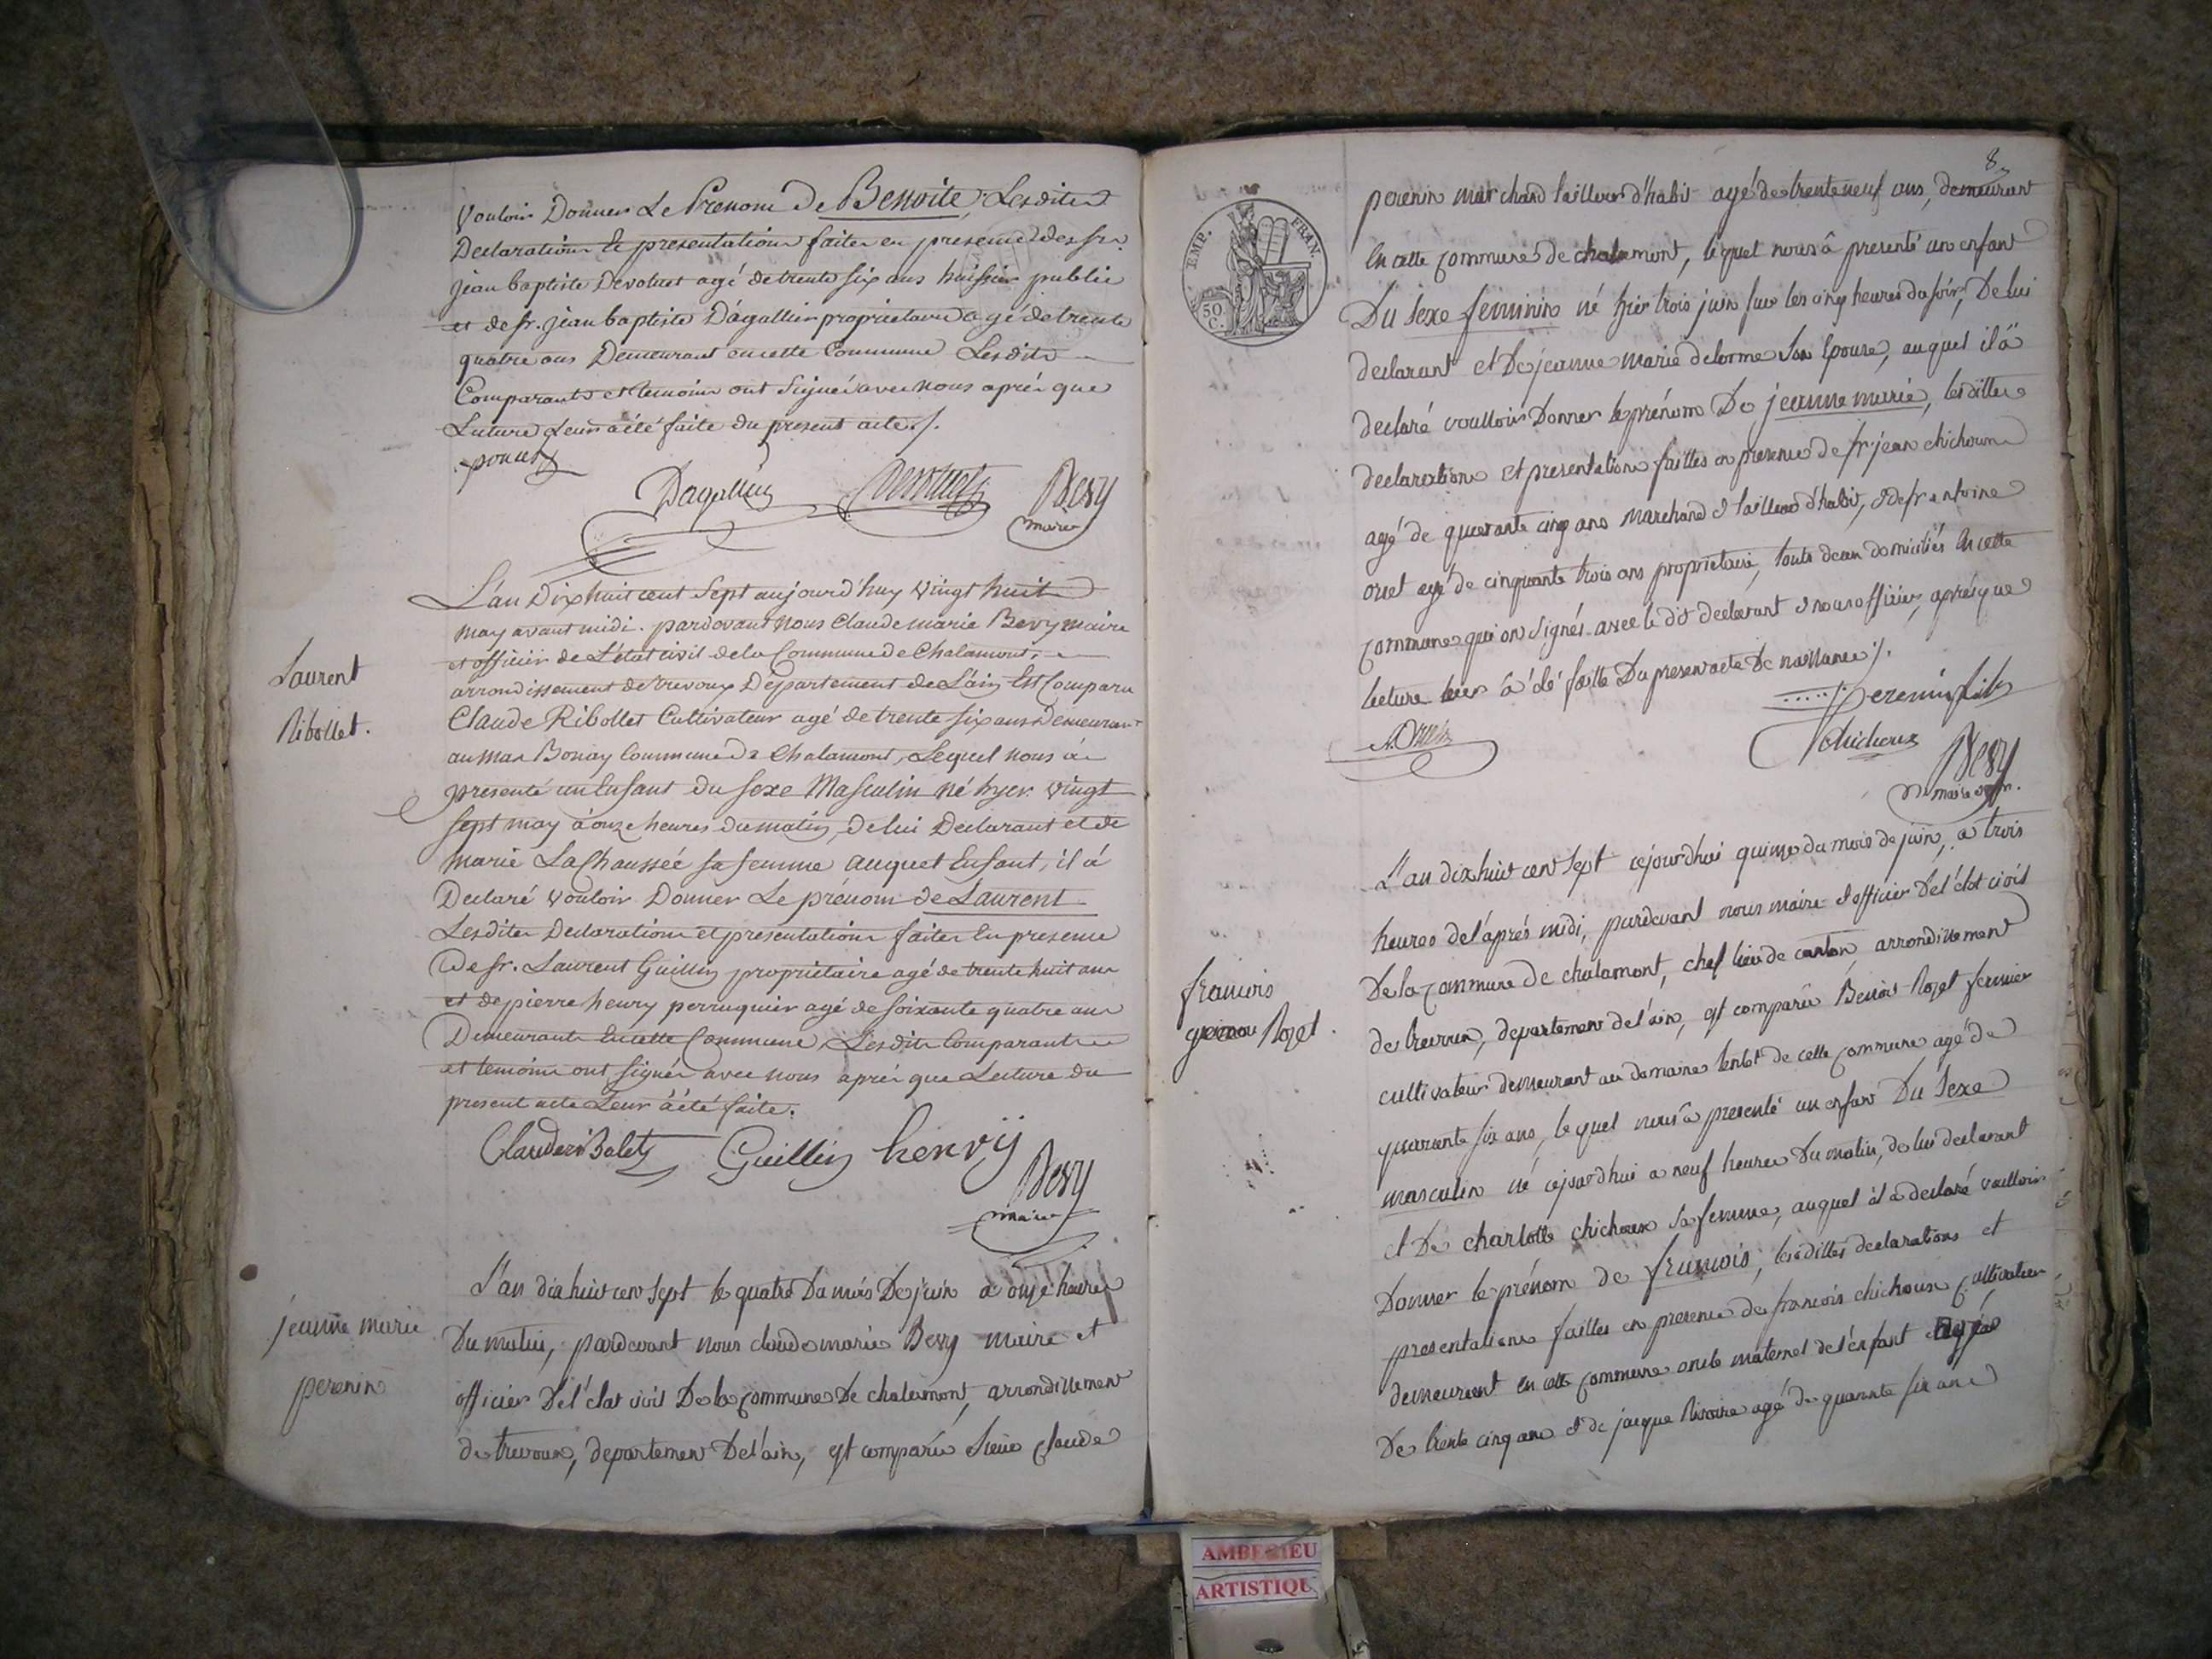 vouloir Donner Le Prenom De Benoite, Lesdites
Declaration Et presentation faites en presence des sr.
jean baptiste Devoluet agé de trente six ans huissier public
et de sr. jean baptiste Dagallier proprietaire agé de trente
quatre ans Demeurant en cette Commune Lesdits
Comparants et temoins ont signé avec nous après que
Lecture Leur a été faite du present acte ./.
poncet
Dagallier Devoluet Bevy
maire
Laurent
Ribollet.
L'an Dix huit cent Sept aujourd'huy vingt huit
may avant midi. pardevant nous Claude marie Bevy maire
et officier de L'état civil de la Commune de Chalamont,
arrondissement de trevoux Département de L'ain Est Comparu
Claude Ribollet Cultivateur agé de trente six ans Demeurant
au mas Bonay Commune De Chalamont, Lequel nous à
presenté un Enfant du sexe Masculin né hyer vingt
sept may à onze heures du matin, de lui Declarant et de
marie La Chaussée sa femme auquel Enfant, il à
Declaré vouloir Donner Le prénom de Laurent
Lesdites Declaration et presentation faites En presence
De sr. Laurent Guillin propriétaire agé de trente huit ans
et de pierre henry perruquier agé de soixante quatre ans
Demeurants En cette Commune, Lesdits Comparants
et temoins ont signés avec nous après que Lecture du
present acte Leur à été faite.
Claude riBolets Guillin henry
Bevy
maire
jeanne marie
perenin
L'an dix huit cent sept le quatre Du mois De juin a onze heures
Du matin, pardevant nous claude marie Bevy maire et
officier De l'etat civil De la commune De chalamont, arrondissement
de trevoux, departement De l'ain, est comparu sieur claude
8
EMP. FRAN.
50 C.
perenin marchand tailleur d'habit agé de trente neuf ans, demeurant
En cette commune de chalamont, lequel nous â presenté un enfant
Du sexe feminin né hier trois juin sur les cinq heures du soir, De lui
declarant et De jeanne marie delorme Son Epouse, auquel il â
declaré voulloir Donner le prénom De jeanne marie, lesdittes
declaration et presentation faittes en presence de sr. jean chichoux
agé de quarante cinq ans marchand & tailleur d'habit, & de sr antoine
oriet agé de cinquante trois ans proprietaire, touts deux domiciliés En cette
commune qui on signés avec le dit declarant & nous officier, après que
lecture leur â été faitte Du present acte De naissance ./.
perenin fils
chichoux
Bevy
maire
francois
Rozet.
L'an dix huit cent sept cejourd'hui quinze du mois de juin, a trois
heures de l'après midi, pardevant nous maire & officier De l'état civil
De la commune de chalamont, chef lieu de canton, arrondissement
de trevoux, departement de l'ain, est comparu Benoit Rozet fermier
cultivateur demeurant au domaine de cette commune agé de
quarante six ans, lequel nous â presenté un enfant Du Sexe
masculin né cejourd'hui a neuf heures Du matin, de lui declarant
et De charlotte chichoux sa femme, auquel il a declaré voulloir
Donner le prénom de francois, lesdittes declarations et
presentations faittes en presence de francois chichoux cultivateur
demeurant en cette commune oncle maternel de l'enfant agé
De trente cinq ans & de jacque Rivoire agé de quarante six ans
AMBERIEU
ARTISTIQU